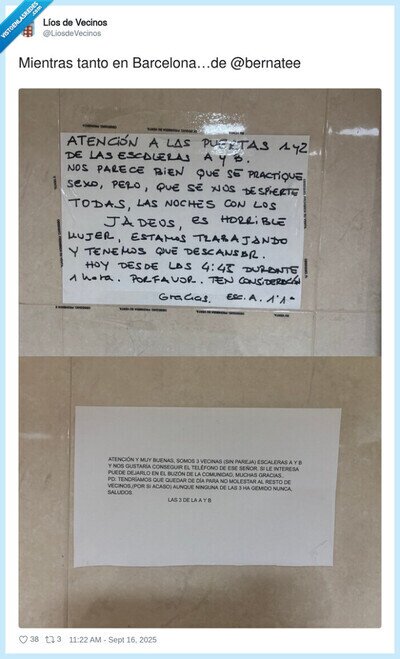 VISTOENLASREDES
.com
Líos de Vecinos
@LiosdeVecinos
Mientras tanto en Barcelona…de @bernatee
ATENCIÓN A LAS PUERTAS 1 y 2
DE LAS ESCALERAS A Y B.
NOS PARECE BIEN QUE SE PRACTIQUE
SEXO, PERO, QUE SE NOS DESPIERTE
TODAS, LAS NOCHES CON LOS
JADEOS, ES HORRIBLE
MUJER, ESTAMOS TRABAJANDO
Y TENEMOS QUE DESCANSAR.
HOY DESDE LAS 4:45 DURANTE
1 hora. POR FAVOR. TEN CONSIDERACIÓN
Gracias. ESC. A. 1º1ª
ATENCIÓN Y MUY BUENAS, SOMOS 3 VECINAS (SIN PAREJA) ESCALERAS A Y B
Y NOS GUSTARÍA CONSEGUIR EL TELÉFONO DE ESE SEÑOR. SI LE INTERESA
PUEDE DEJARLO EN EL BUZÓN DE LA COMUNIDAD, MUCHAS GRACIAS,
PD: TENDRÍAMOS QUE QUEDAR DE DÍA PARA NO MOLESTAR AL RESTO DE
VECINOS,(POR SI ACASO) AUNQUE NINGUNA DE LAS 3 HA GEMIDO NUNCA,
SALUDOS.
LAS 3 DE LA A Y B
38 3 11:22 AM - Sept 16, 2025